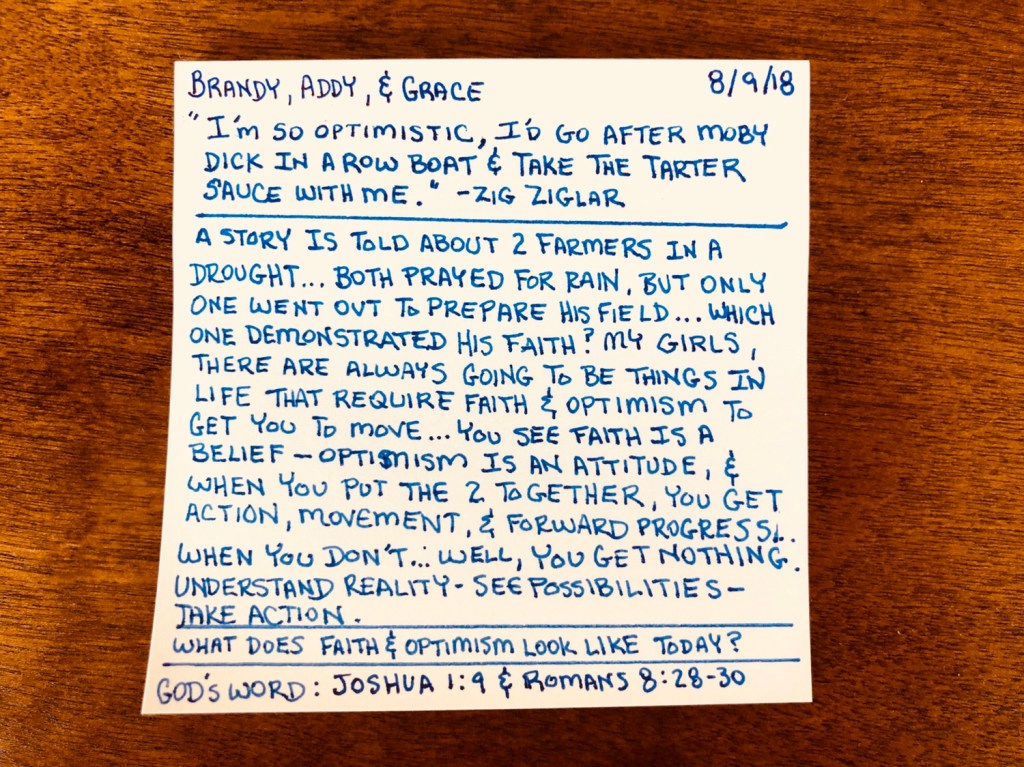 BRANDY, ADDY, & GRACE 8/9/18
"I'M SO OPTIMISTIC, I'D GO AFTER MOBY
DICK IN A ROW BOAT & TAKE THE TARTER
SAUCE WITH ME." -ZIG ZIGLAR
A STORY IS TOLD ABOUT 2 FARMERS IN A
DROUGHT... BOTH PRAYED FOR RAIN, BUT ONLY
ONE WENT OUT TO PREPARE HIS FIELD... WHICH
ONE DEMONSTRATED HIS FAITH? MY GIRLS,
THERE ARE ALWAYS GOING TO BE THINGS IN
LIFE THAT REQUIRE FAITH & OPTIMISM TO
GET YOU TO MOVE... YOU SEE FAITH IS A
BELIEF - OPTIMISM IS AN ATTITUDE, &
WHEN YOU PUT THE 2 TOGETHER, YOU GET
ACTION, MOVEMENT, & FORWARD PROGRESS.
WHEN YOU DON'T... WELL, YOU GET NOTHING.
UNDERSTAND REALITY - SEE POSSIBILITIES -
TAKE ACTION.
WHAT DOES FAITH & OPTIMISM LOOK LIKE TODAY?
GOD'S WORD: JOSHUA 1:9 & ROMANS 8:28-30